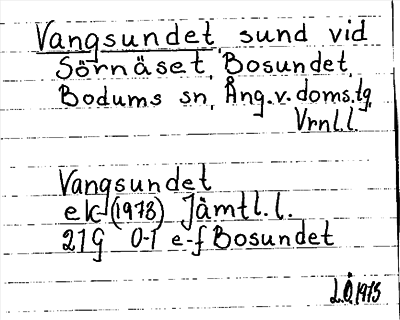 Vangsundet, sund vid
Sörnäset, Bosundet,
Bodums sn, Ång.v.doms.tg,
Vrnl.l.
Vangsundet
ek (1973) Jämtl.l.
21G 0-1 e-f Bosundet
LÅ 1975